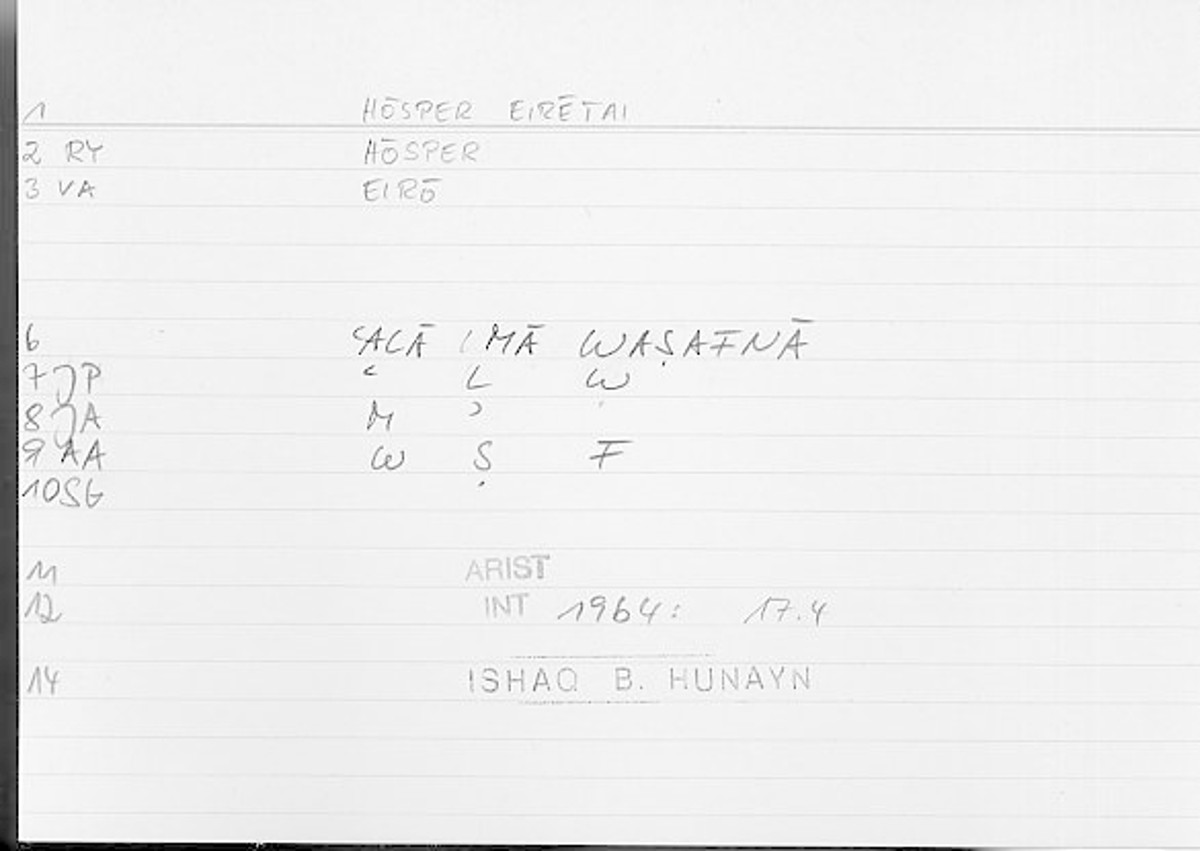 1 HŌSPER EIRĒTAI
2 RY HŌSPER
3 VA EIRŌ
6 ʿALĀ MĀ WAṢAFNĀ
7 JP ʿ L W
8 JA M ʾ
9 AA W Ṣ F
10SG
11 ARIST
12 INT 1964: 17.4
14 ISHAQ B. HUNAYN